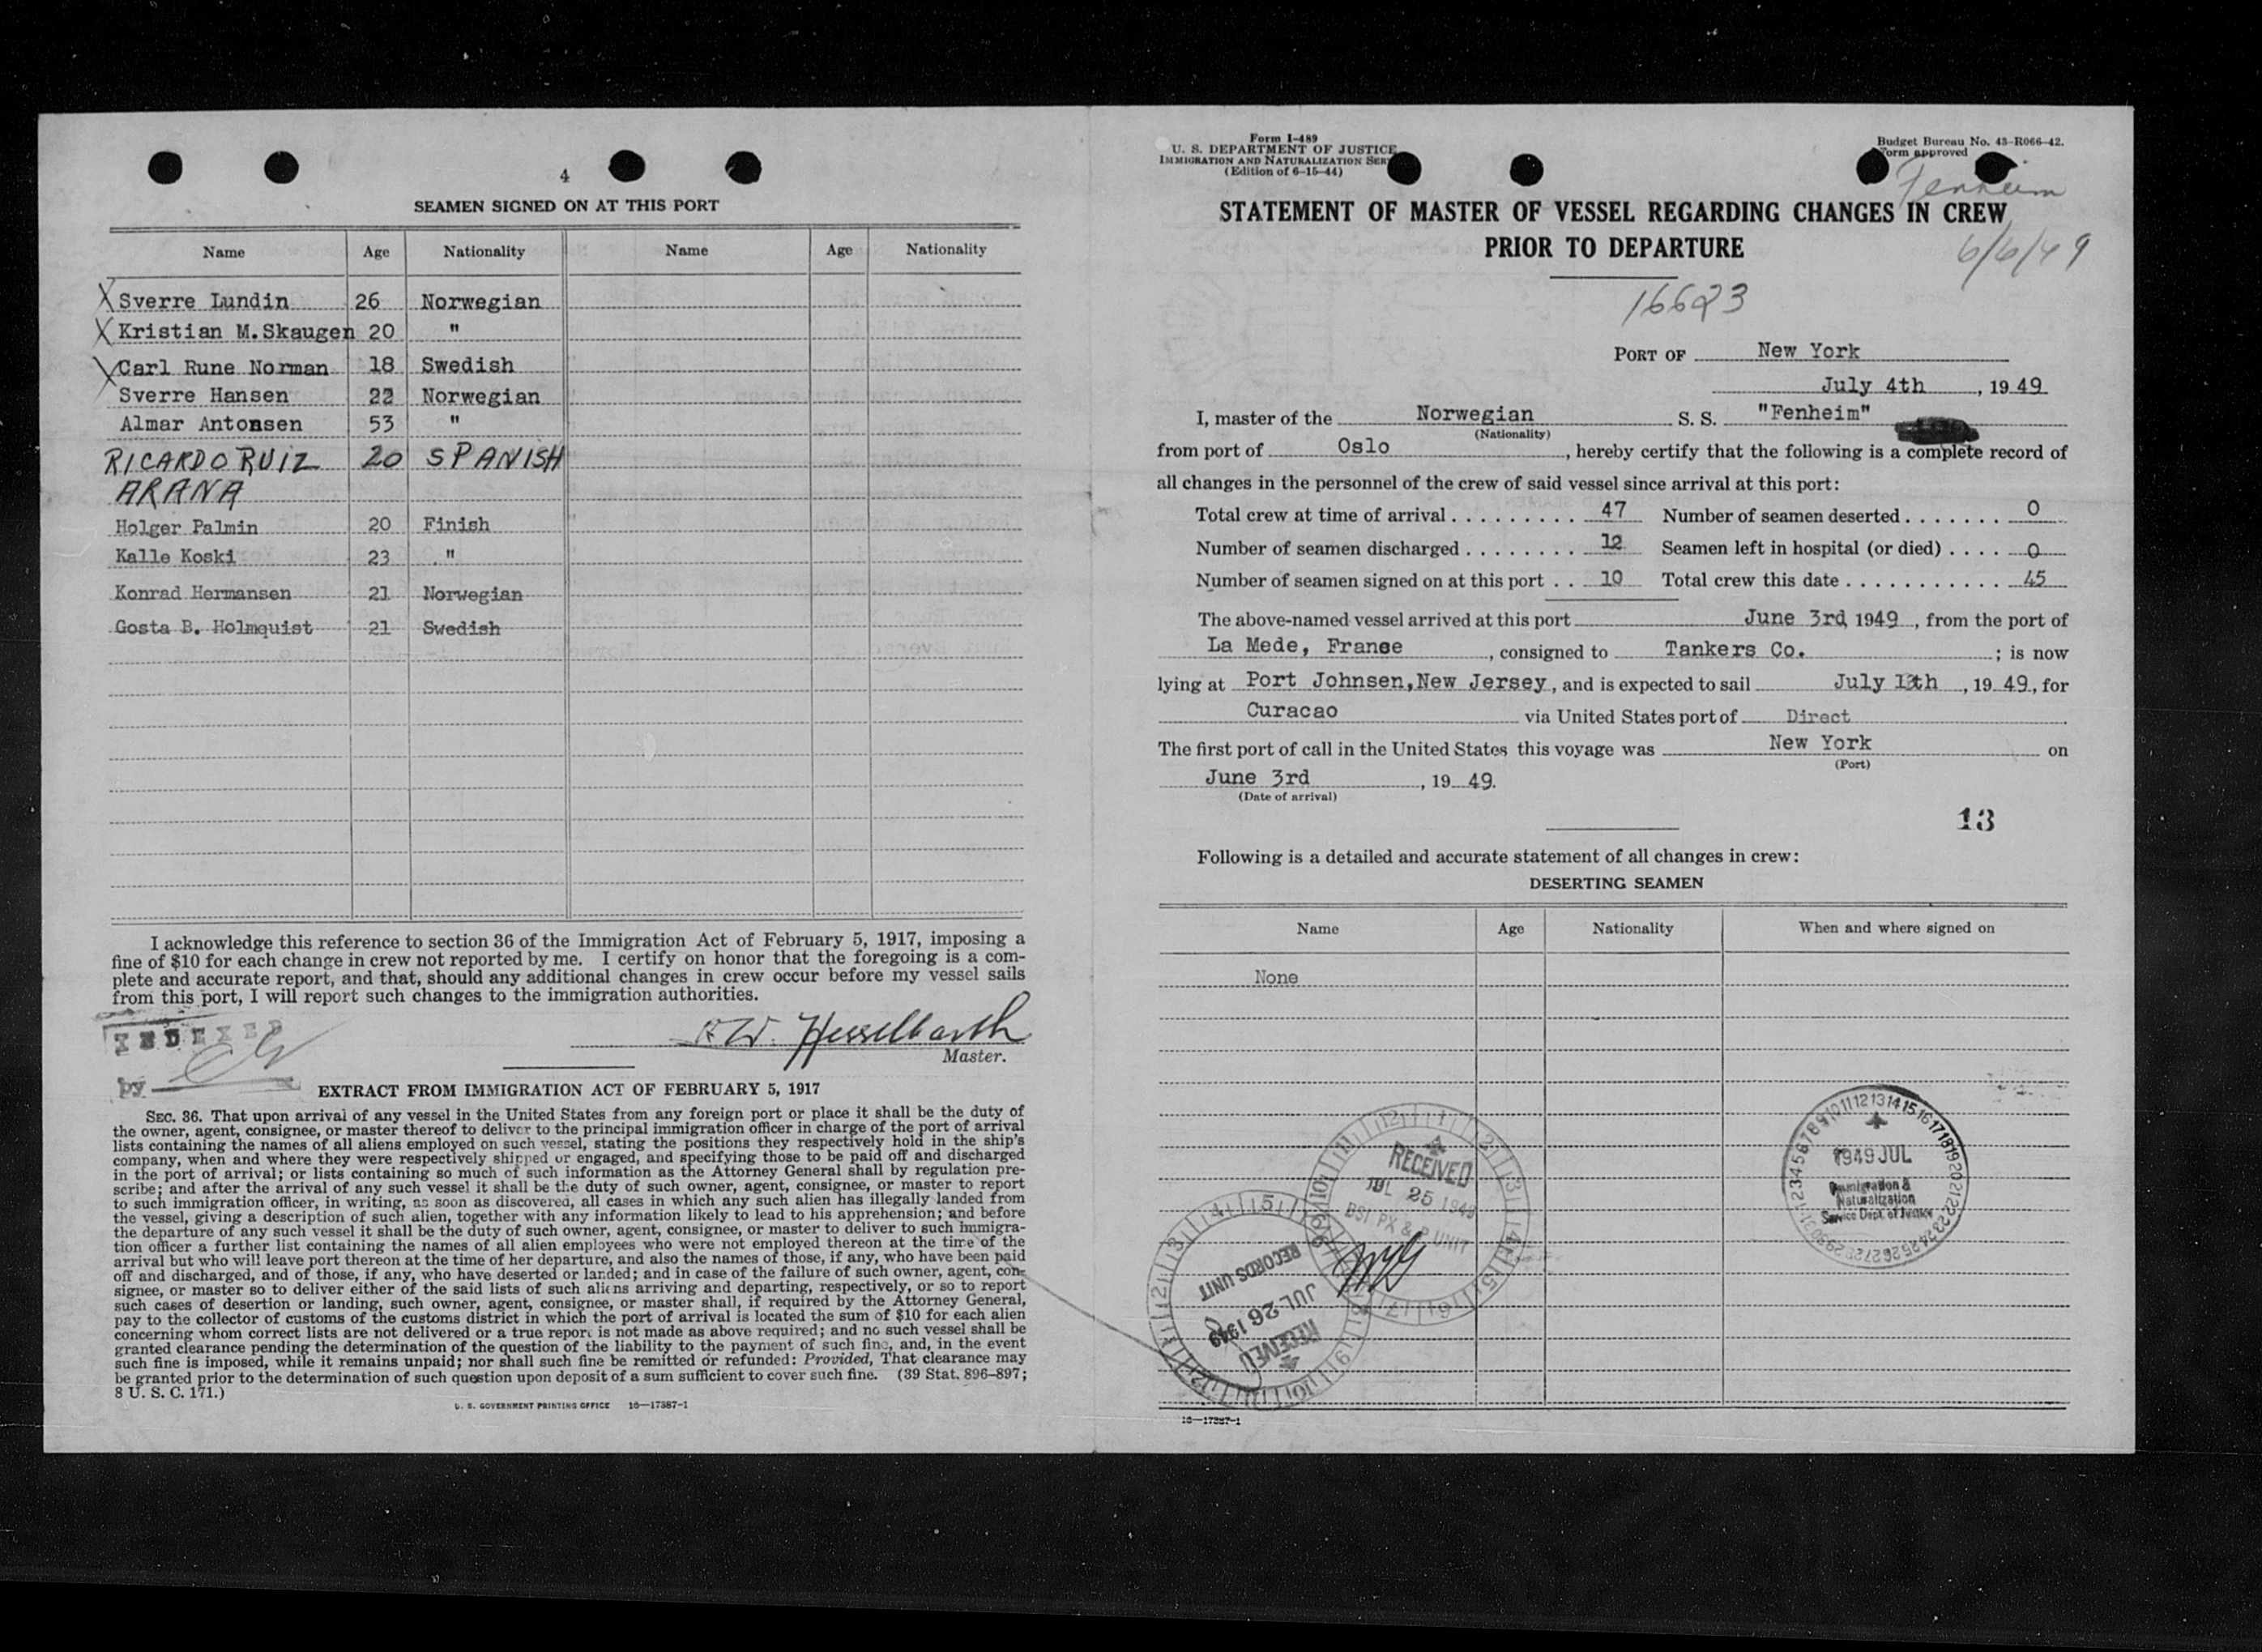 4
SEAMEN SIGNED ON AT THIS PORT
Name Age Nationality Name Age Nationality
X Sverre Lundin 26 Norwegian
X Kristian M.Skaugen 20 "
X Carl Rune Norman 18 Swedish
Sverre Hansen 22 Norwegian
Almar Antonsen 53 "
RICARDO RUIZ 20 SPANISH
ARANA
Holger Palmin 20 Finish
Kalle Koski 23 "
Konrad Hermansen 21 Norwegian
Gosta B. Holmquist 21 Swedish
I acknowledge this reference to section 36 of the Immigration Act of February 5, 1917, imposing a
fine of $10 for each change in crew not reported by me. I certify on honor that the foregoing is a com-
plete and accurate report, and that, should any additional changes in crew occur before my vessel sails
from this port, I will report such changes to the immigration authorities.
INDEXED
by
Hesselbarth
Master.
EXTRACT FROM IMMIGRATION ACT OF FEBRUARY 5, 1917
SEC. 36. That upon arrival of any vessel in the United States from any foreign port or place it shall be the duty of
the owner, agent, consignee, or master thereof to deliver to the principal immigration officer in charge of the port of arrival
lists containing the names of all aliens employed on such vessel, stating the positions they respectively hold in the ship's
company, when and where they were respectively shipped or engaged, and specifying those to be paid off and discharged
in the port of arrival; or lists containing so much of such information as the Attorney General shall by regulation pre-
scribe; and after the arrival of any such vessel it shall be the duty of such owner, agent, consignee, or master to report
to such immigration officer, in writing, as soon as discovered, all cases in which any such alien has illegally landed from
the vessel, giving a description of such alien, together with any information likely to lead to his apprehension; and before
the departure of any such vessel it shall be the duty of such owner, agent, consignee, or master to deliver to such immigra-
tion officer a further list containing the names of all alien employees who were not employed thereon at the time of the
arrival but who will leave port thereon at the time of her departure, and also the names of those, if any, who have been paid
off and discharged, and of those, if any, who have deserted or landed; and in case of the failure of such owner, agent, con-
signee, or master so to deliver either of the said lists of such aliens arriving and departing, respectively, or so to report
such cases of desertion or landing, such owner, agent, consignee, or master shall, if required by the Attorney General,
pay to the collector of customs of the customs district in which the port of arrival is located the sum of $10 for each alien
concerning whom correct lists are not delivered or a true report is not made as above required; and no such vessel shall be
granted clearance pending the determination of the question of the liability to the payment of such fine, and, in the event
such fine is imposed, while it remains unpaid; nor shall such fine be remitted or refunded: Provided, That clearance may
be granted prior to the determination of such question upon deposit of a sum sufficient to cover such fine. (39 Stat. 896–897;
8 U. S. C. 171.)
U. S. GOVERNMENT PRINTING OFFICE 16—17387-1
Form I-489
U. S. DEPARTMENT OF JUSTICE
IMMIGRATION AND NATURALIZATION SER
(Edition of 6-15-44)
Budget Bureau No. 43-R066-42.
Form approved
Fenheim
STATEMENT OF MASTER OF VESSEL REGARDING CHANGES IN CREW
PRIOR TO DEPARTURE
6/6/49
16623
PORT OF New York
July 4th, 19 49
I, master of the Norwegian S. S. "Fenheim"
(Nationality)
from port of Oslo, hereby certify that the following is a complete record of
all changes in the personnel of the crew of said vessel since arrival at this port:
Total crew at time of arrival . . . . . . . . . 47 Number of seamen deserted . . . . . . . 0
Number of seamen discharged . . . . . . . . 12 Seamen left in hospital (or died) . . . . 0
Number of seamen signed on at this port . . 10 Total crew this date . . . . . . . . . . . 45
The above-named vessel arrived at this port June 3rd, 1949, from the port of
La Mede, France, consigned to Tankers Co. ; is now
lying at Port Johnsen, New Jersey, and is expected to sail July, 19 49, for
Curacao via United States port of Direct
The first port of call in the United States this voyage was New York on
(Port)
June 3rd, 19 49.
(Date of arrival)
13
Following is a detailed and accurate statement of all changes in crew:
DESERTING SEAMEN
Name Age Nationality When and where signed on
None
RECEIVED
JUL 25 1949
BSI PX & P UNIT
RECORDS UNIT
JUL 26 1949
RECEIVED
1949 JUL
Immigration &
Naturalization
Service Dept. of Justice
16—17387-1